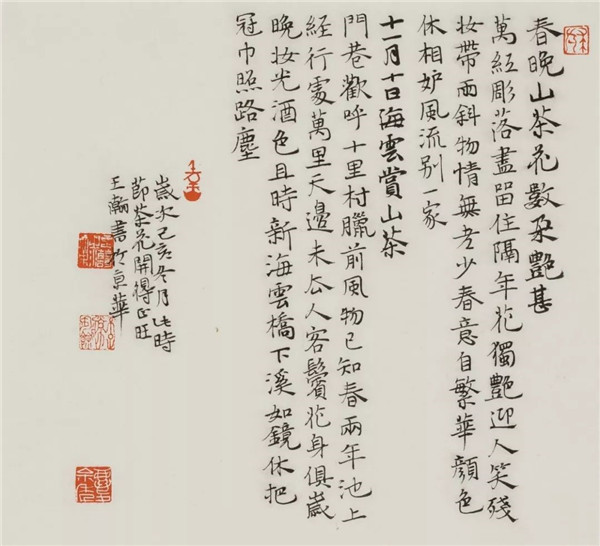 春晚山茶花數朵艷甚
萬紅彫落盡留住隔年花獨艷迎人笑殘
妝帶雨斜物情無老少春意自繁華顏色
休相妒風流別一家
十一月十日海雲賞山茶
門巷歡呼十里村臘前風物已知春兩年池上
經行處萬里天邊未去人客鬢花身俱歲
晚妝光酒色且時新海雲橋下溪如鏡休把
冠巾照路塵
歲次己亥冬月此時
節茶花開得正旺
王瀚書於京華